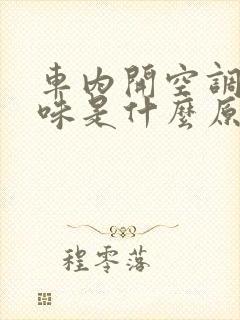 車內開空調
味是什麼原
程零落